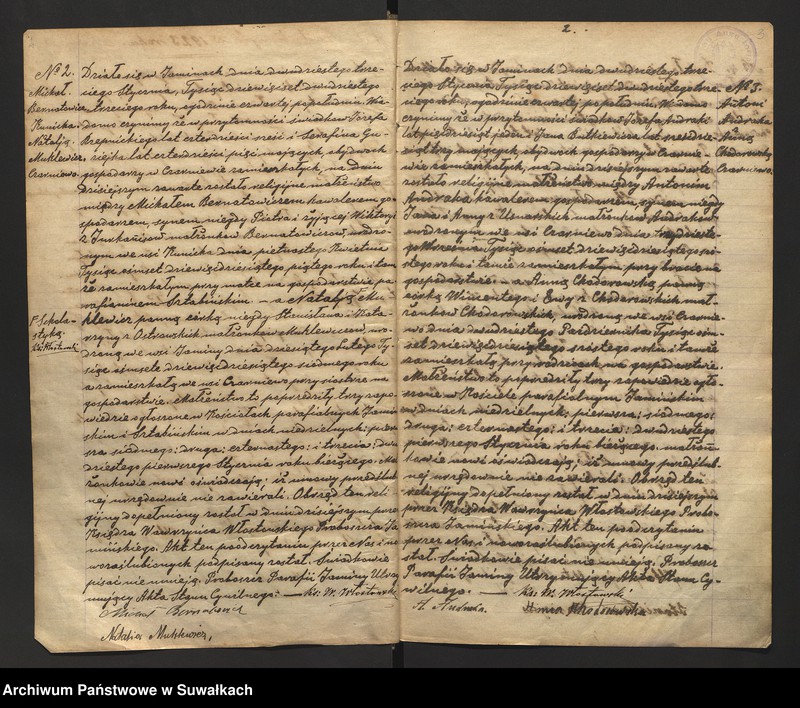 2.
№ 2.
Michał
Bernatowicz
Kunicha
Natalja
Muklewicz
Czarniewo
Działo się w Jaminach dnia dwudziestego trze-
ciego Stycznia, Tysiąc dziewięćset dwudziestego
trzeciego roku, o godzinie czwartej popołudniu. Wia-
domo czynimy że w przytomności świadków Józefa
lat czterdzieści sześć i Serafina
lat czterdzieści pięć mających, obydwuch
gospodarzy w Czarniewie zamieszkałych, na dniu
dzisiejszym zawarte zostało religijne małżeństwo
między Michałem Bernatowiczem kawalerem, go-
spodarzem, synem niegdy Piotra i żyjącej Wiktoryi
z małżonków Bernatowiczów, urodzo-
nym we wsi Kunicha dnia piętnastego Kwietnia
Tysiąc ośmset dziewięćdziesiątego piątego roku i tam
że zamieszkałym przy matce na gospodarstwie pa-
rafianinem Sztabińskim. — a Natalją Mu-
klewicz panną córką niegdy Stanisława i Kata-
rzyny z Ostrowskich małżonków Muklewiczów, uro-
dzoną we wsi Jaminy dnia dziesiątego Lutego Ty-
siąc ośmset dziewięćdziesiątego siódmego roku
a zamieszkałą we wsi Czarniewo przy siostrze na
gospodarstwie. Małżeństwo to poprzedziły trzy zapo-
wiedzie ogłoszone w Kościołach parafjalnych Jamiń-
skim i Sztabińskim w dniach niedzielnych: pierw-
sza siódmego: druga: czternastego: i trzecia: dwu-
dziestego pierwszego Stycznia roku bieżącego. Mał-
żonkowie nowi oświadczają, iż umowy przedślub-
nej urzędownie nie zawierali. Obrzęd ten reli-
gijny dopełniony został w dniu dzisiejszym przez
Księdza Wawrzyńca Włostowskiego Proboszcza Ja-
mińskiego. Akt ten po odczytaniu przez Nas i no-
wozaślubionych podpisany został. Świadkowie
pisać nie umieją. Proboszcz Parafji Jaminy Utrzy-
mujący Akta Stanu Cywilnego: — ks. W. Włostowski
Michał Bernatowicz
Natalia Muklewicz,
№ 3.
Antoni
Andraka
Anna
Chodorowska
Czarniewo
Działo się w Jaminach dnia dwudziestego trze-
ciego Stycznia Tysiąc dziewięćset dwudziestego trze-
ciego roku, o godzinie czwartej popołudniu. Wiadomo
czynimy że w przytomności świadków Józefa Andraki
lat pięćdziesiąt jeden i Jana Butkiewicza lat sześćdzie-
siąt trzy mających, obydwuch gospodarzy w Czarnie-
wie zamieszkałych, na dniu dzisiejszym zawarte
zostało religijne małżeństwo między Antonim
Andraka kawalerem, gospodarzem, synem niegdy
Jana i Anny z małżonków Andraków,
urodzonym we wsi Czarniewo dnia
Tysiąc ośmset dziewięćdziesiątego
roku i tamże zamieszkałym przy bracie na
gospodarstwie. — a Anną Chodorowską panną
córką Wincentego i Ewy z Chodorowskich mał-
żonków Chodorowskich, urodzoną we wsi Czarnie-
wo dnia dwudziestego Października Tysiąc ośm-
set dziewięćdziesiątego szóstego roku i tamże
zamieszkałą przy rodzicach na gospodarstwie.
Małżeństwo to poprzedziły trzy zapowiedzie ogło-
szone w Kościele parafialnym Jamińskim
w dniach niedzielnych: pierwsza; siódmego:
druga: czternastego: i trzecia: dwudziestego
pierwszego Stycznia roku bieżącego. Małżon-
kowie nowi oświadczają, iż umowy przedślub-
nej urzędownie nie zawierali. Obrzęd ten
religijny dopełniony został w dniu dzisiejszym
przez Księdza Wawrzyńca Włostowskiego Probo-
szcza Jamińskiego. Akt ten po odczytaniu
przez Nas i nowozaślubionych podpisany zo-
stał. Świadkowie pisać nie umieją. Proboszcz
Parafji Jaminy Utrzymujący Akta Stanu Cy-
wilnego. — ks. W. Włostowski
A. Andraka. Anna Chodorowska
Archiwum Państwowe w Suwałkach